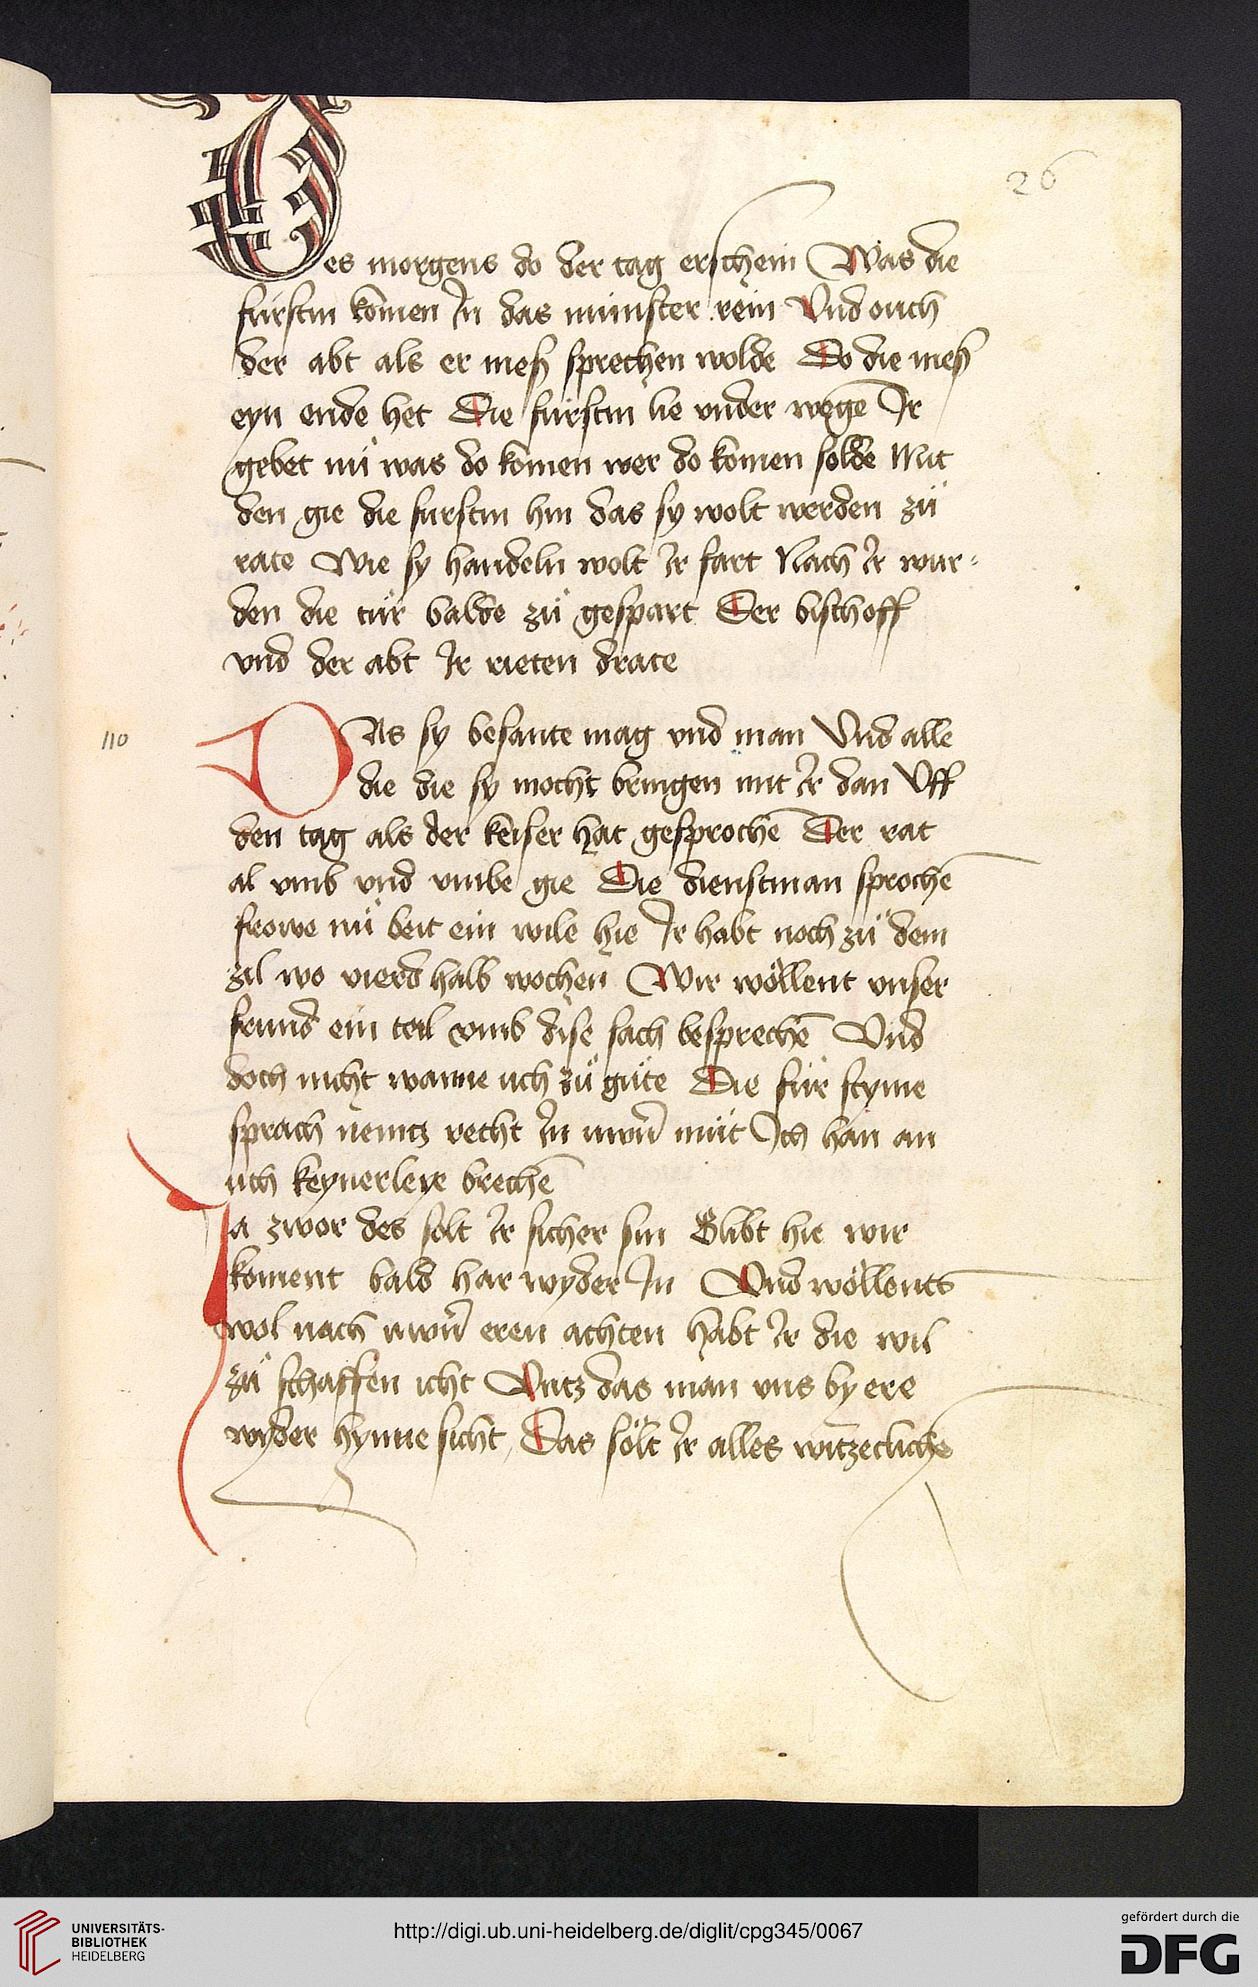 26
Des morgens do der tag erschein Was die
fürstin komen In das münster rein Vnd ouch
der abt als er meß sprechen wolde Do die meß
eyn ende het Die fürstin lie vnder wegē Ir
gebet nü was do komen wer do komen solde Mit
den gie die furstin hin das sy wolt werden zü
rate Wie sy handeln wolt Ir fart Nach Ir wur-
den die tür balde zü gespart Der bischoff
vnd der abt Ir rieten drate
110
DAs sy besante mag vnd man Vnd alle
die die sy mocht bringen mit Ir dan Vff
den tag als der keiser hat gesprochē Der rat
al vmb vnd vmbe gie Die dienstman sprochē
frowe nü beit ein wile hie Ir habt noch zü dem
zil wo vierd halb wochen Wir wöllent vnser
frund ein teil vmb dise sach besprechē Vnd
doch nicht wanne uch zü güte Die für styme
sprach nemtz recht In uwrn̄ müt Ich han an
uch keynerleye brechē
Ja zwor des solt Ir sicher sin Blibt hie wir
koment bald har wyder In Vnd wöllents
wol nach uwrn̄ eren achten habt Ir die wil
zü schaffen icht Vntz das man vns by ere
wyder hynne sicht Das sölt Ir alles witzecliche
UNIVERSITÄTS-
BIBLIOTHEK
HEIDELBERG
http://digi.ub.uni-heidelberg.de/diglit/cpg345/0067
gefördert durch die
DFG